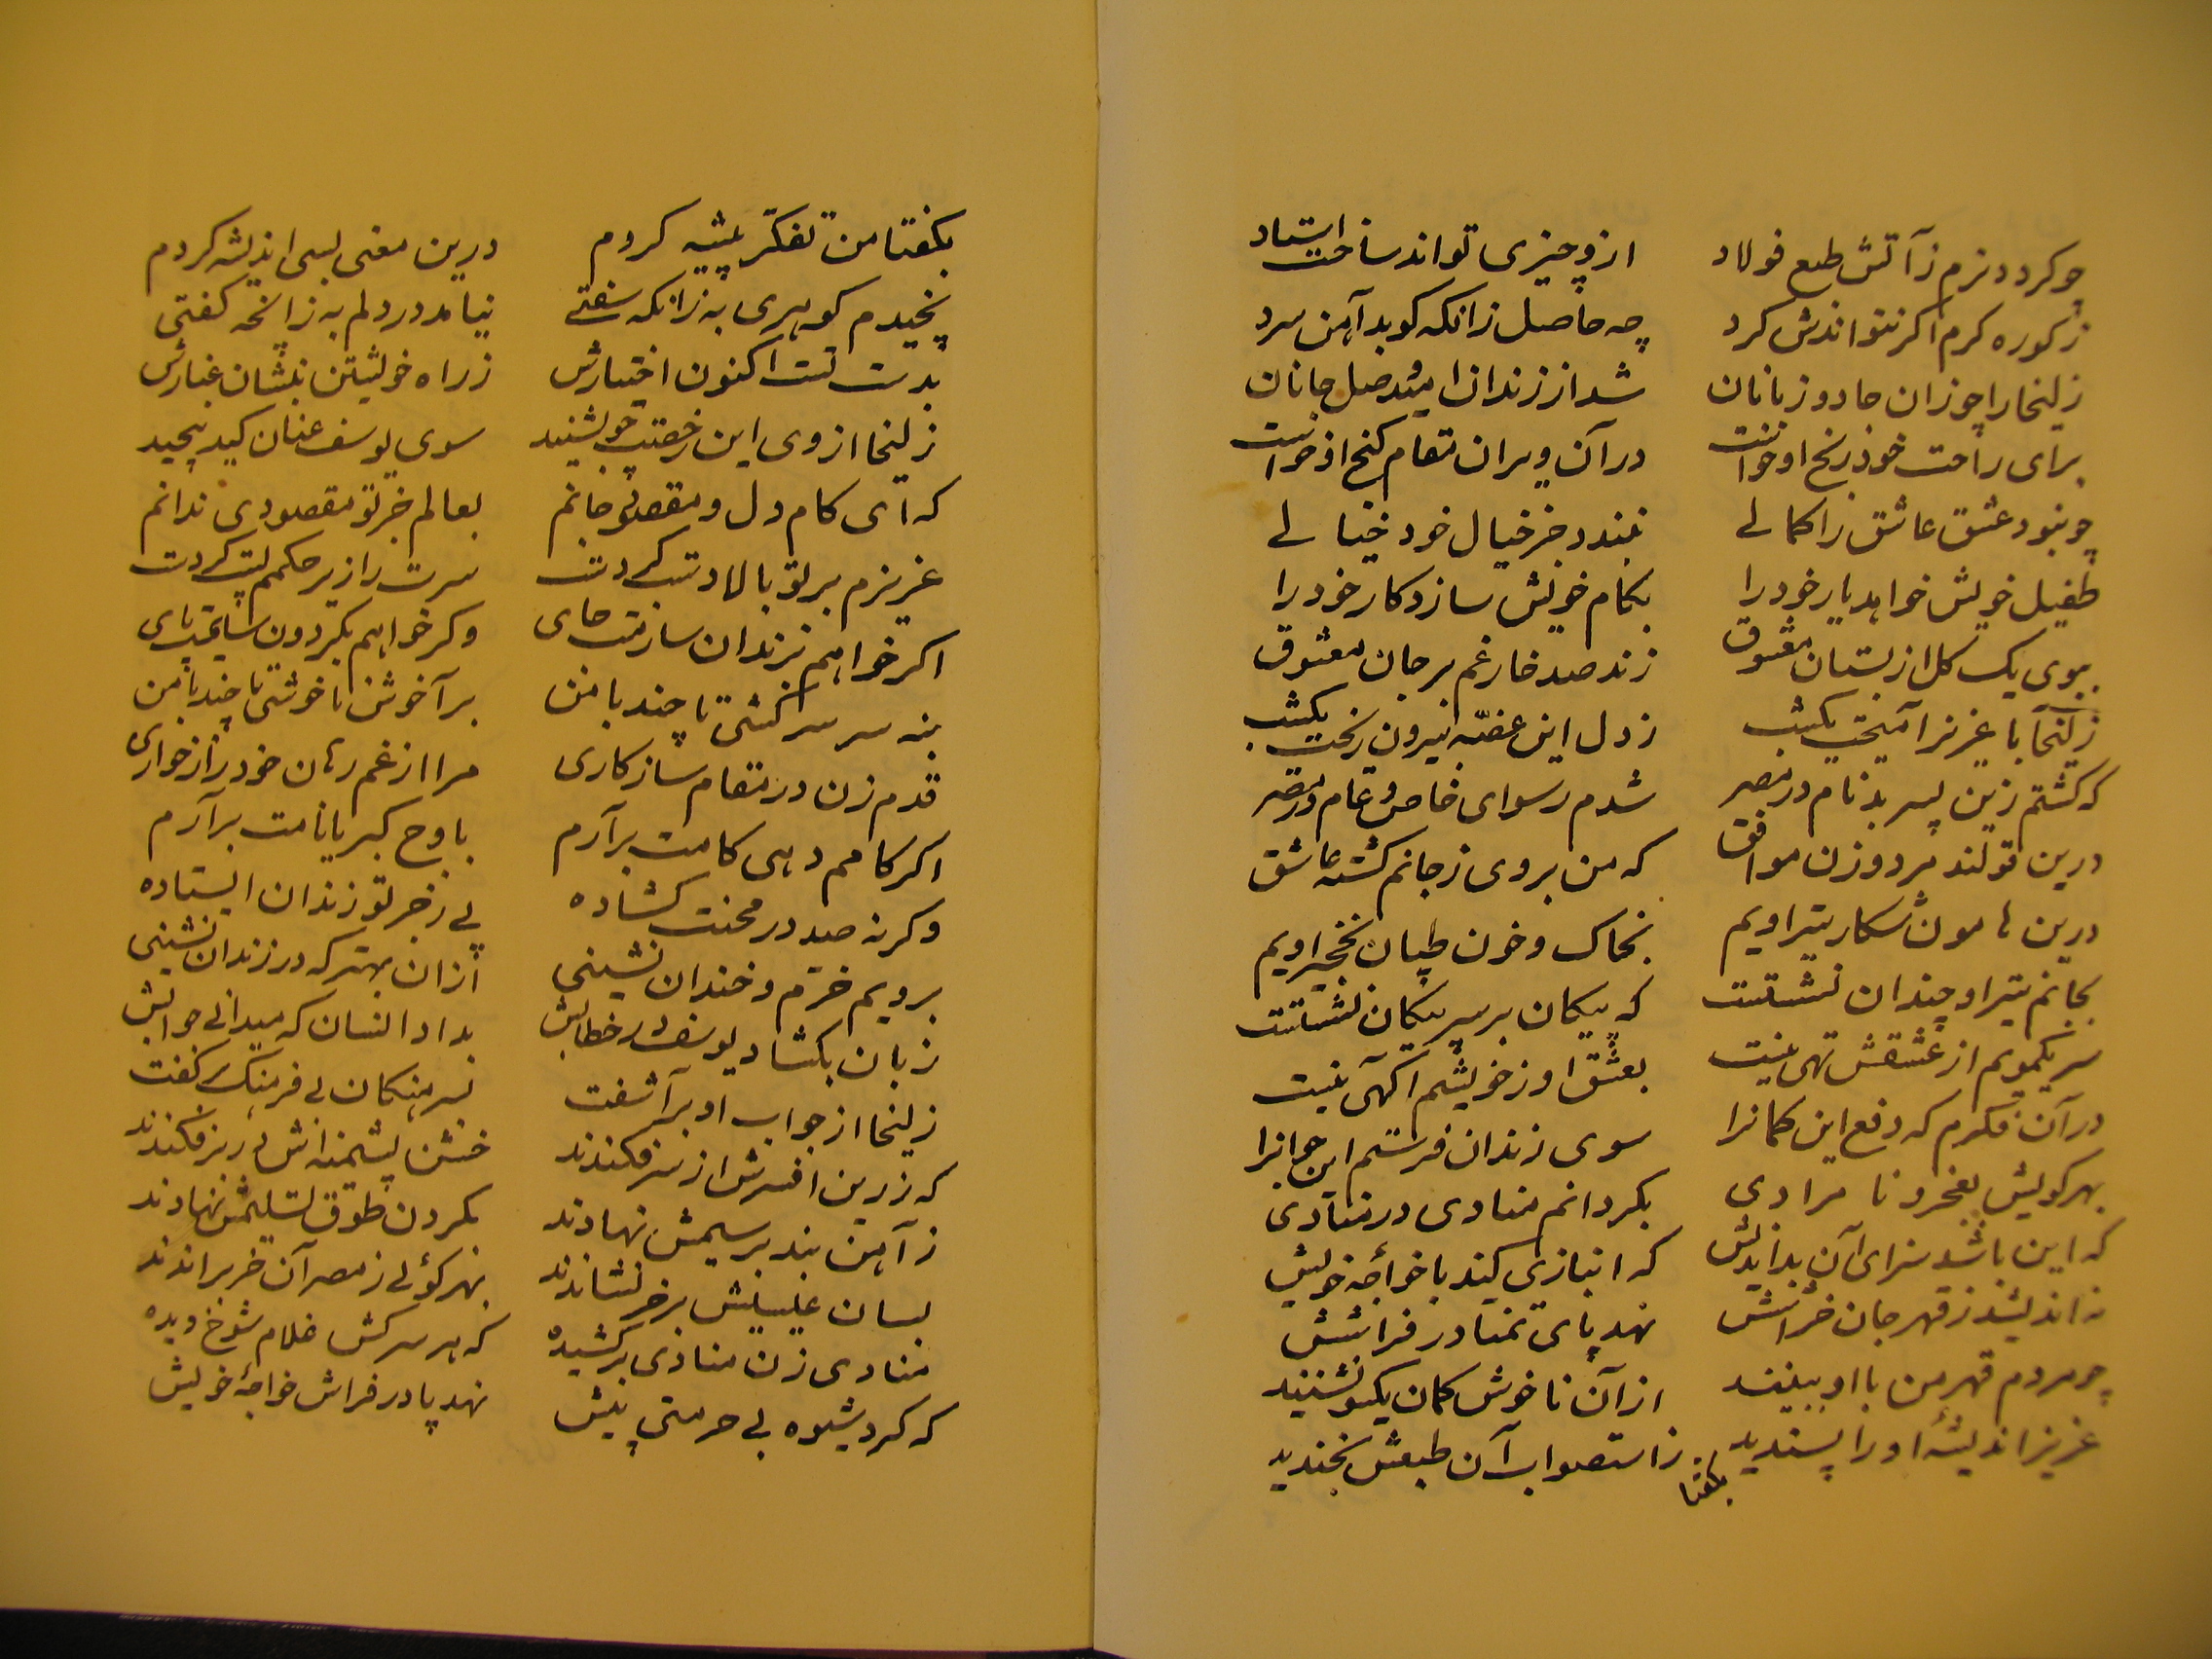 چو کردد نرم ز آتش طبع فولاد ازو چیزی تواند ساخت استاد
ز کوره کرم اکر نتواندش کرد چه حاصل زانکه کوبد آهن سرد
زلیخا را چو زان جادو زبانان شد از زندان امید وصل جانان
برای راحت خود رنج او خواست در آن ویران مقام کنج او خواست
چو نبود عشق عاشق را کمالی نبندد جز خیال خود خیالی
طفیل خویش خواهد یار خود را بکام خویش سازد کار خود را
ببوی یک کل از بستان معشوق زند صد خار غم بر جان معشوق
زلیخا با عزیز آمیخت یکشب ز دل این غصّه بیرون ریخت یکشب
که کشتم زین پسر بدنام در مصر شدم رسوای خاص و عام در مصر
درین قولند مرد و زن موافق که من بر وی ز جانم کشته عاشق
درین هامون شکار تیر اویم بخاک و خون طپان نخچیر اویم
بجانم تیر او چندان نشستست که پیکان بر سر پیکان نشستست
سر یکمویم از عشقش تهی نیست بعشق او ز خویشم آکهی نیست
در آن فکرم که دفع این کمانرا سوی زندان فرستم این جوانرا
بهر کویش بعجز و نامرادی بکردانم منادی در منادی
که این باشد سزای آن بداندیش که انبازی کند با خواجهٔ خویش
نه اندیشد ز قهر جان خراشش نهد پای تمنا در فراشش
چو مردم قهر من با او ببینند از آن ناخوش کمان یکسو نشینند
عزیز اندیشهٔ او را پسندید ز استصواب آن طبعش بخندید
بکفتا
بکفتا من تفکّر پیشه کردم درین معنی بسی اندیشه کردم
نچیدم کوهری به زانکه سفتی نیامد در دلم به زانچه کفتی
بدست تست اکنون اختیارش ز راه خویشتن بنشان غبارش
زلیخا از وی این رخصت چو بشنید سوی یوسف عنان کید پیچید
که ای کام دل و مقصود جانم بعالم جز تو مقصودی ندانم
عزیزم بر تو بالادست کردت سرت را زیر حکمم پست کردت
اکر خواهم بزندان سازمت جای وکر خواهم بکردون سایمت پای
بنه سر سرکشی تا چند با من بر آ خوش ناخوشی تا چند با من
قدم زن در مقام سازکاری مرا از غم رهان خود را ز خواری
اکر کامم دهی کامت برآرم باوج کبریا نامت برآرم
وکرنه صد در محنت کشاده پی زجر تو زندان ایستاده
برویم خرّم و خندان نشینی از آن بهتر که در زندان نشینی
زبان بکشاد یوسف در خطابش بداد انسان که میدانی جوابش
زلیخا از جواب او بر آشفت بسرهنکان بی فرهنک کفت
که زرین افسرش از سر فکندند خشن پشمینه‌اش در بر فکندند
ز آهن بند بر سیمش نهادند بکردن طوق تسلیمش نهادند
بسان عیسیش بر خر نشاندند بهر کوئی ز مصر آن خر براندند
منادی زن منادی برکشیده که هر سرکش غلام شوخ دیده
که کرد شیوه بی حرمتی پیش نهد پا در فراش خواجهٔ خویش